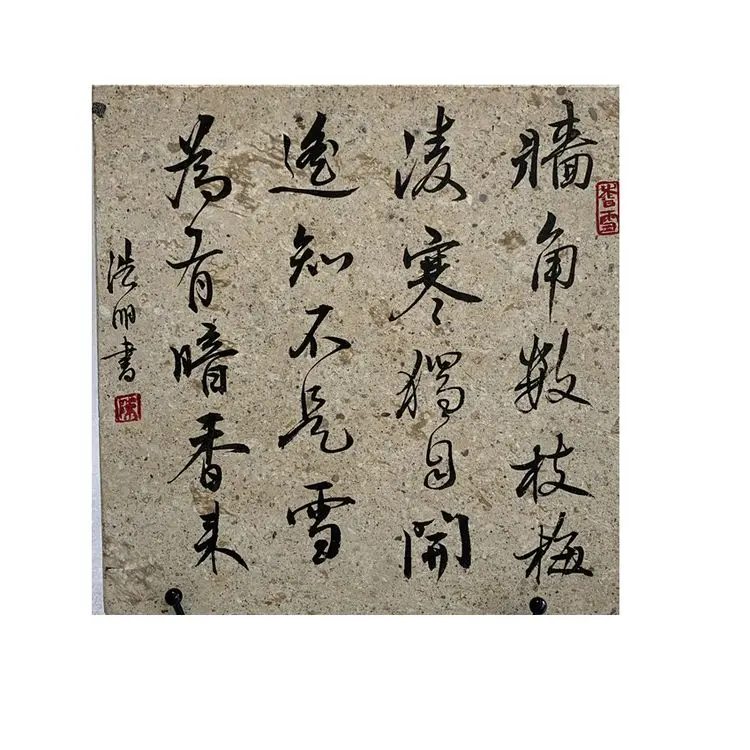 牆角數枝梅
凌寒獨自開
遙知不是雪
為有暗香來
浩明書
香雪
陳